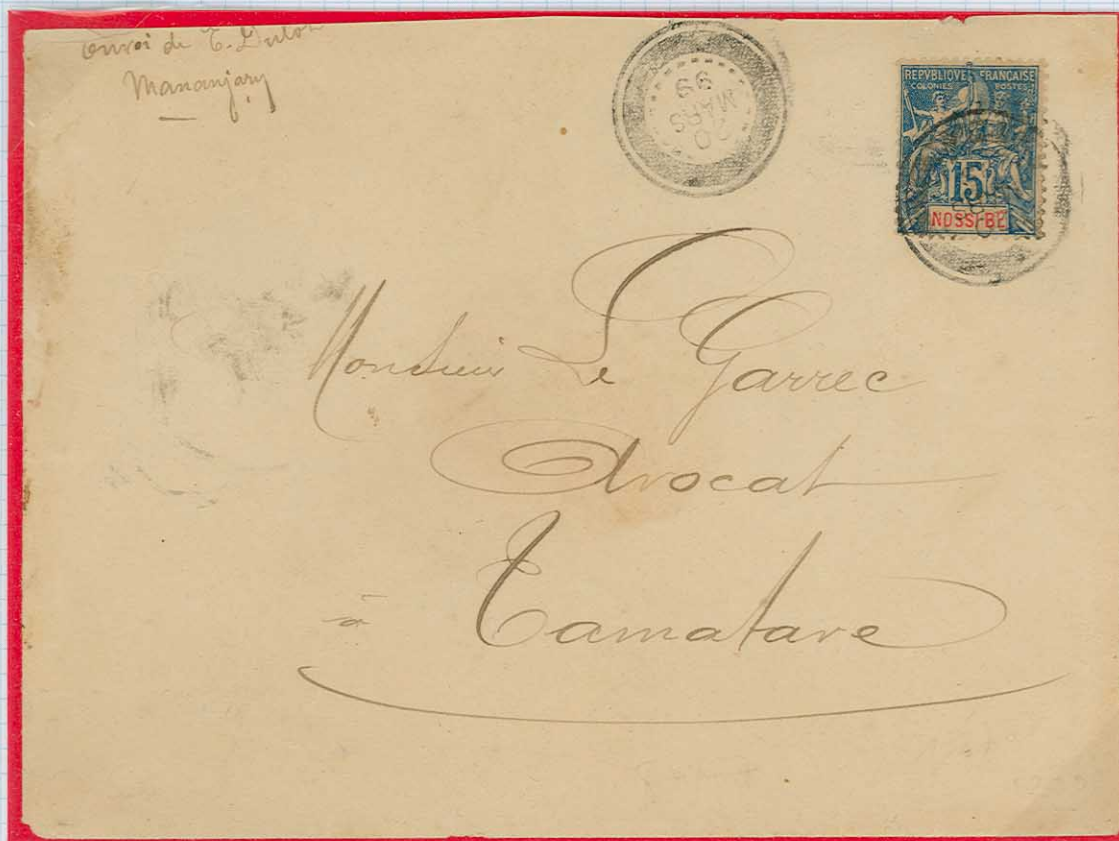 envoi de E.
Mananjary
20
MARS
99
REPVBLIQVE FRANÇAISE
COLONIES POSTES
15
NOSSI-BÉ
Monsieur Le Garrec
Avocat
à Tamatave